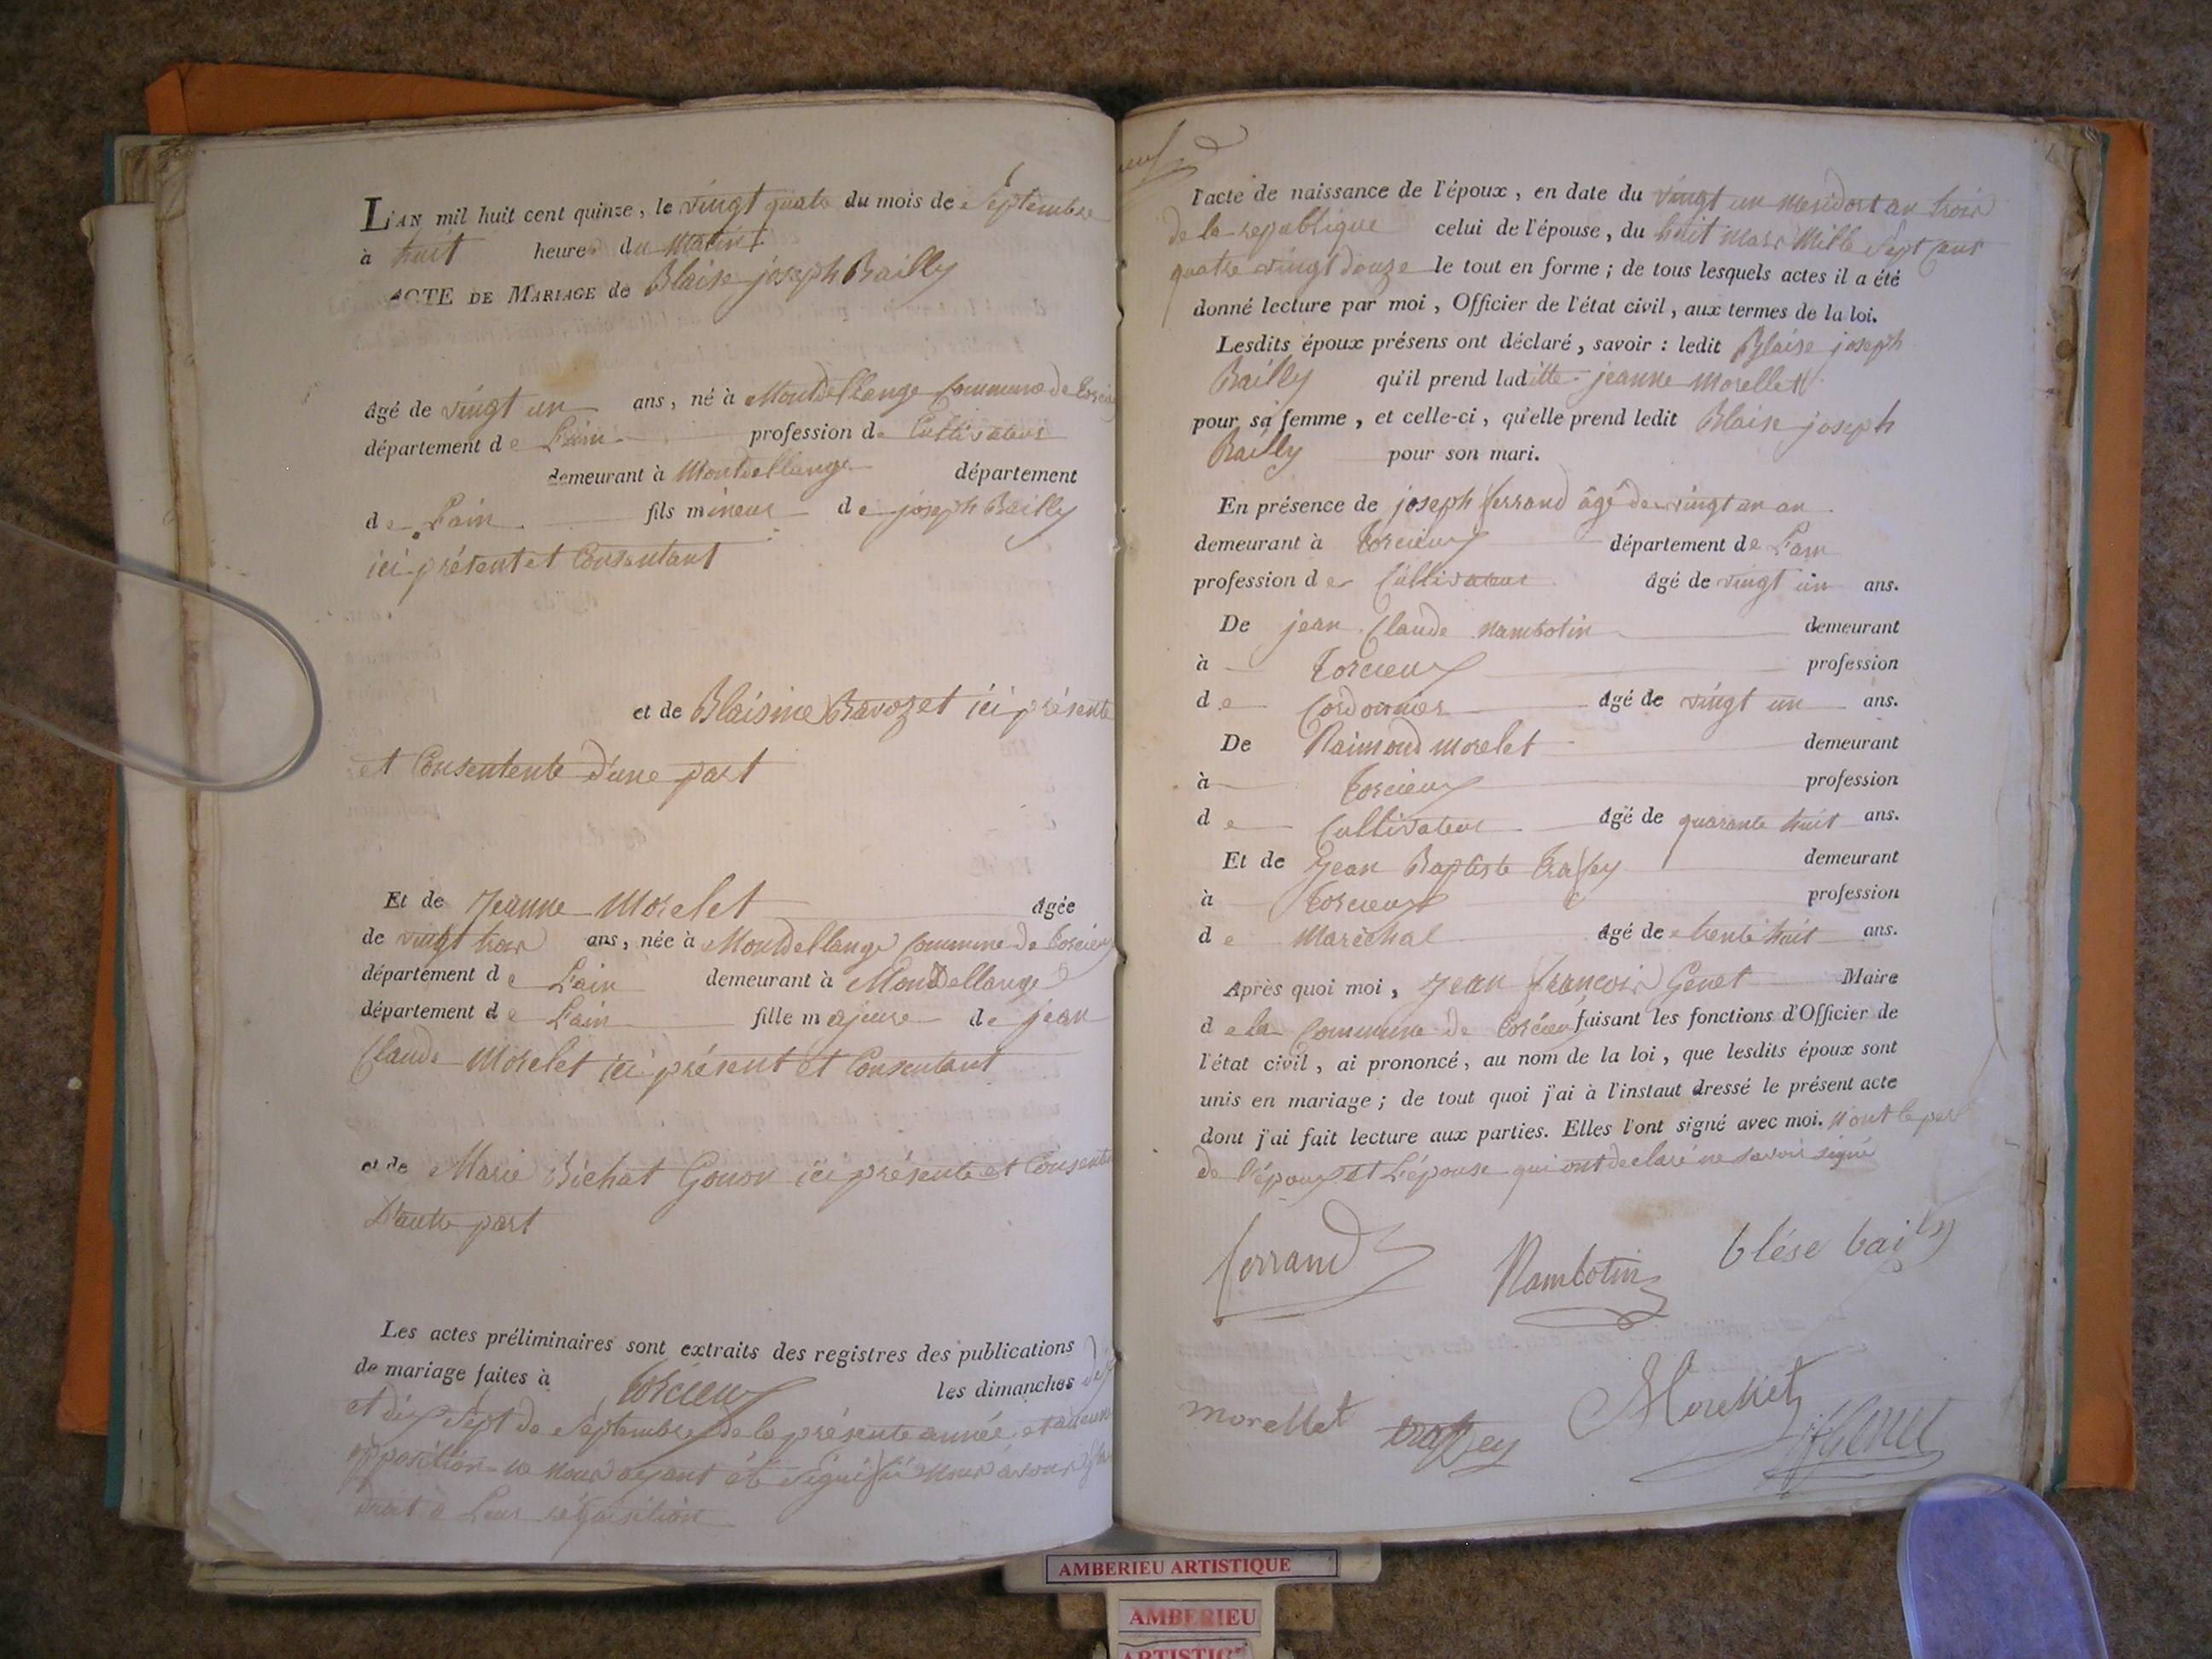 L'AN mil huit cent quinze, le vingt quatre du mois de Septembre
à huit heures du Matin
ACTE DE MARIAGE de Blaise joseph Bailly
âgé de vingt un ans, né à Montdellange Commune de Torcieu
département de L'ain profession de Cultivateur
demeurant à Montdellange département
de L'ain fils mineur de joseph Bailly
ici présent et Consentant
et de Blaisine Ravozet ici présente
et Consentente d'une part
Et de Jeanne Morelet âgée
de vingt trois ans, née à Montdellange Commune de Torcieu
département de L'ain demeurant à Montdellange
département de L'ain fille majeure de jean
Claude Morelet ici présent et Consentant
et de Marie Bichat Gonon ici présente et Consente
D'autre part
Les actes préliminaires sont extraits des registres des publications
de mariage faites à Torcieux les dimanches dix
et dix Sept de Septembre de la présente année et aucune
opposition ne nous ayant été Signifié nous avons fait
droit à Leur réquisition
l'acte de naissance de l'époux, en date du vingt un Messidor an trois
de la republique celui de l'épouse, du huit Mars Mille Sept Cent
quatre vingt douze le tout en forme; de tous lesquels actes il a été
donné lecture par moi, Officier de l'état civil, aux termes de la loi.
Lesdits époux présens ont déclaré, savoir: ledit Blaise joseph
Bailly qu'il prend laditte jeanne Morellet
pour sa femme, et celle-ci, qu'elle prend ledit Blaise joseph
Bailly pour son mari.
En présence de joseph ferrand âgé de vingt un an
demeurant à Torcieux département de L'ain
profession de Cultivateur âgé de vingt un ans.
De jean Claude Nambotin demeurant
à Torcieux profession
de Cordonnier âgé de vingt un ans.
De Raimond Morelet demeurant
à Torcieux profession
de Cultivateur âgé de quarante huit ans.
Et de Jean Baptiste Traffey demeurant
à Torcieux profession
de Maréchal âgé de trente huit ans.
Après quoi moi, Jean françois Genet Maire
de la Commune de Torcieu faisant les fonctions d'Officier de
l'état civil, ai prononcé, au nom de la loi, que lesdits époux sont
unis en mariage; de tout quoi j'ai à l'instant dressé le présent acte
dont j'ai fait lecture aux parties. Elles l'ont signé avec moi.
de l'époux et L'épouse qui ont declaré ne savoir signé
ferrand Nambotin blése baily
morellet traffey Morellet Genet
AMBERIEU ARTISTIQUE
AMBERIEU
ARTISTIQ